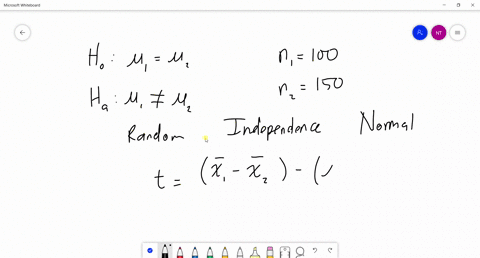 Microsoft Whiteboard
NT
H₀: μ₁ = μ₂
n₁ = 100
n₂ = 150
Hₐ: μ₁ ≠ μ₂
Random Independence Normal
t = (x̄₁ - x̄₂) - (